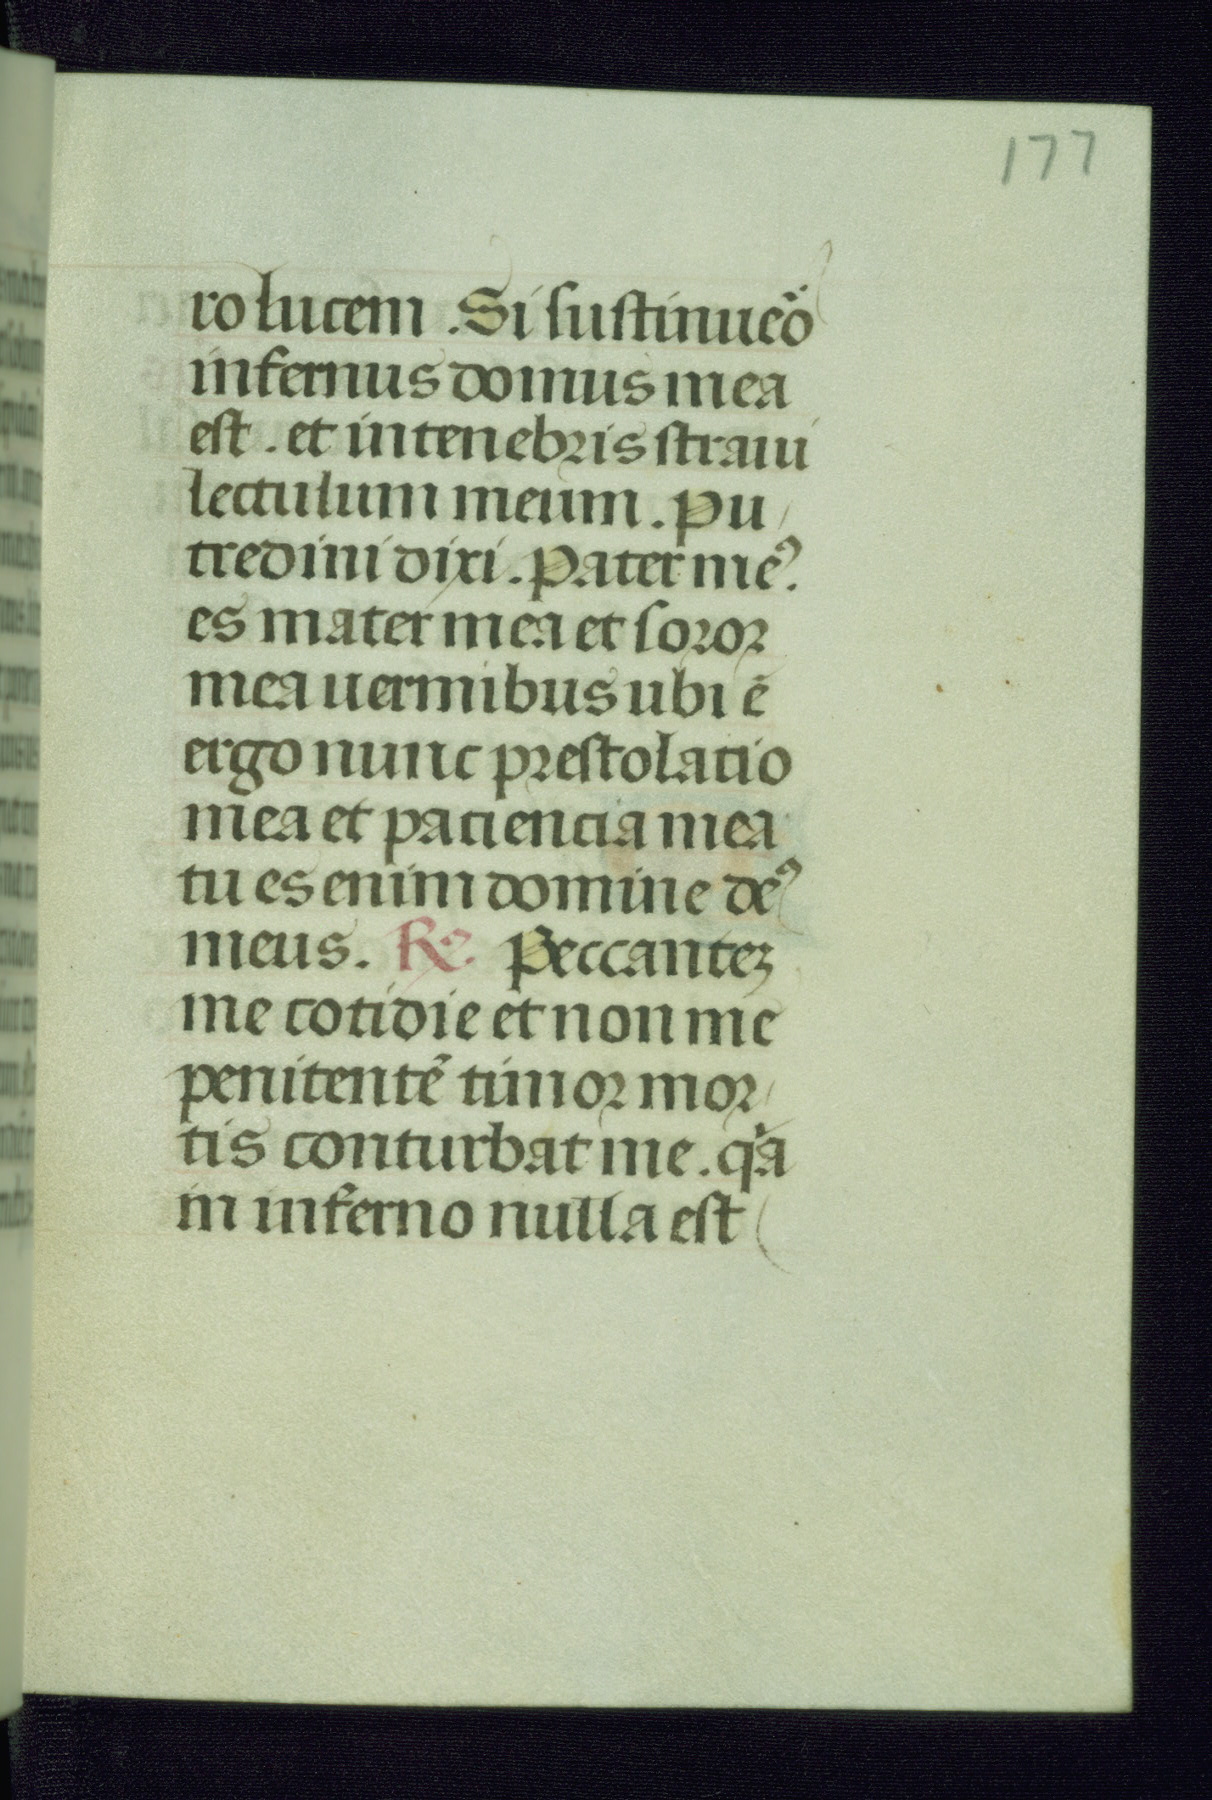 177
ro lucem . Si sustinue͛o
infernus domus mea
est . et in tenebris straui
lectulum meum . Pu
tredini dixi . Pater meꝰ .
es mater mea et soror
mea uermibus ubi ē
ergo nunc prestolatio
mea et paciencia mea
tu es enim domine deꝰ
meus . R̷o Peccantez
me cotidie et non me
penitentē timor mor
tis conturbat me . qⁱa
in inferno nulla est